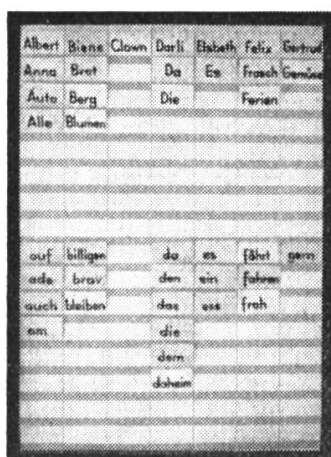 Albert Biene Clown Darli Elsbeth Felix Gertrud
Anna Brot Da Es Frosch Gemüse
Auto Berg Die Ferien
Alle Blumen
auf billigen da es fährt gern
ade brav den ein fahren
auch bleiben das esse froh
am die
dem
daheim